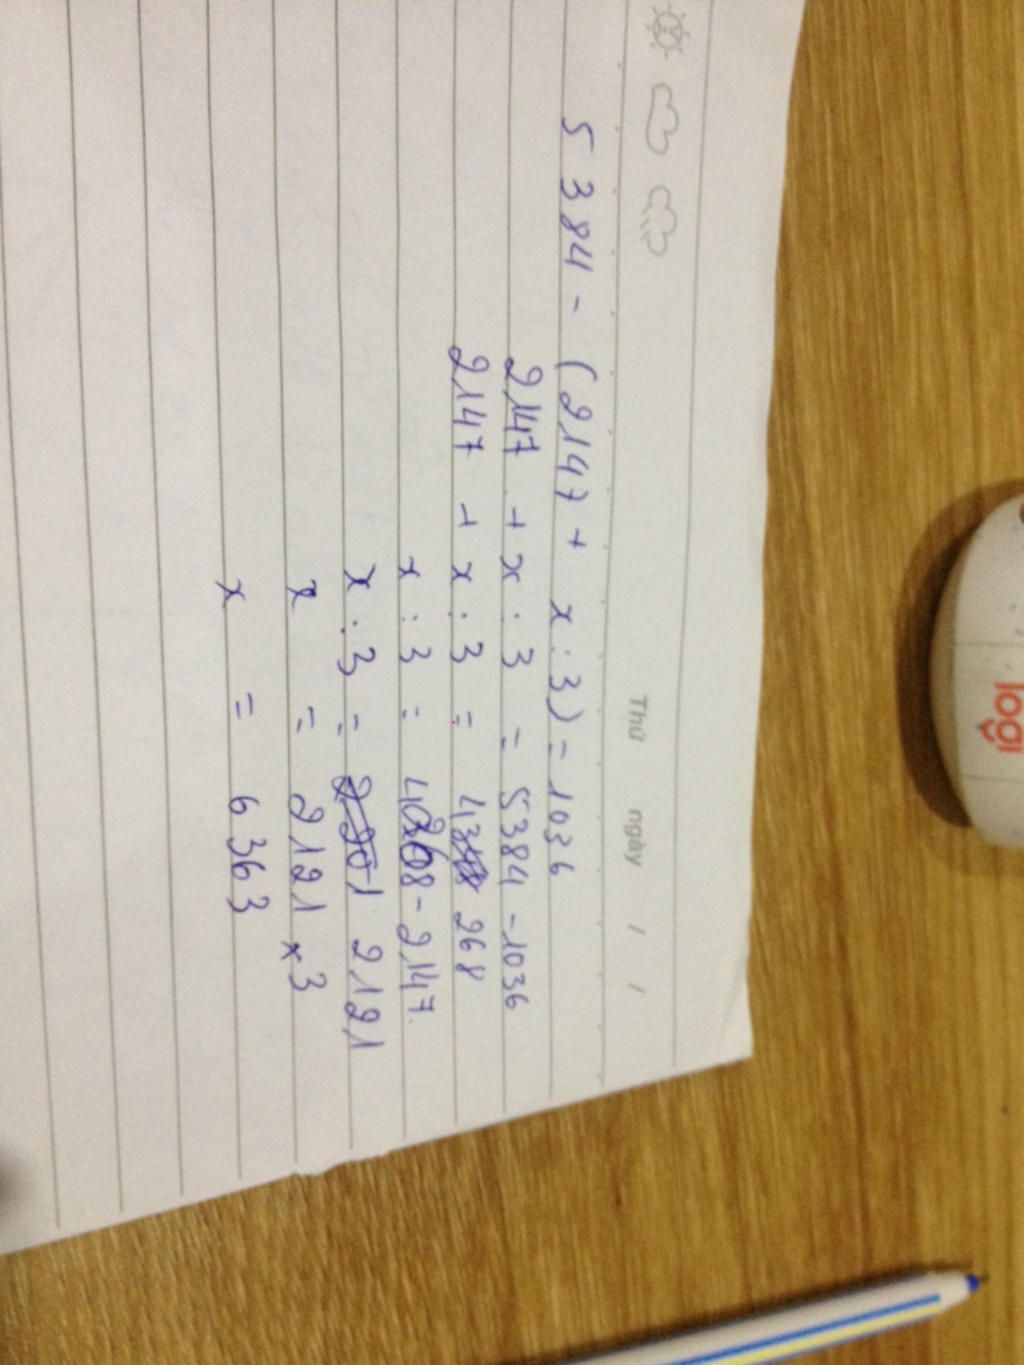 Thứ ngày / /
5384 - (2147 + x : 3) = 1036
2147 + x : 3 = 5384 - 1036
2147 + x : 3 = 4 268
x : 3 = 4268 - 2147
x : 3 = 2121
x = 2121 x 3
x = 6363
lợi